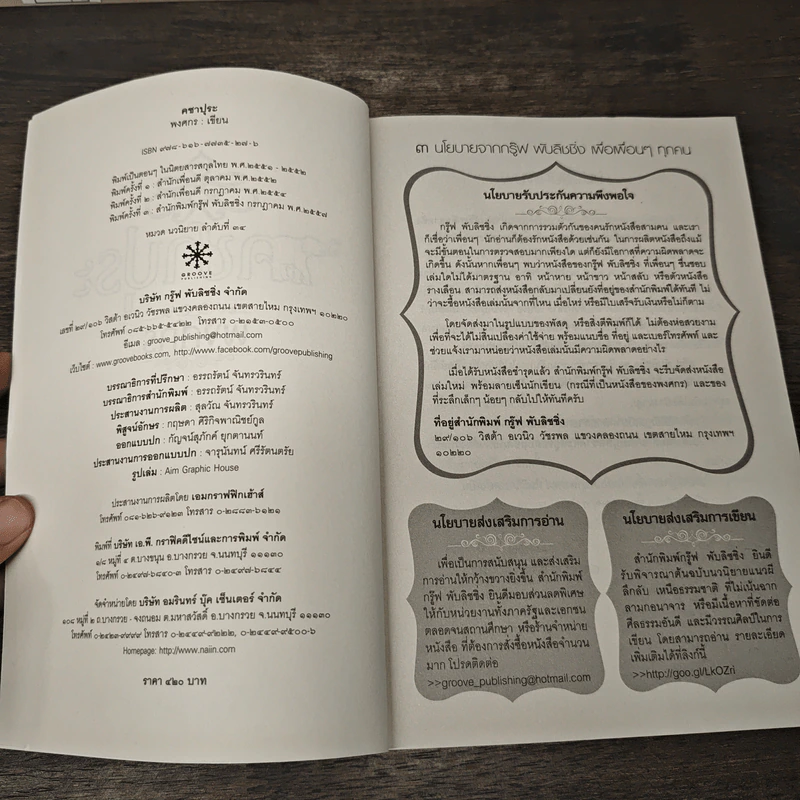 คชาปุระ
พงศกร : เขียน
ISBN ๙๗๘-๖๑๖-๗๗๓๕-๒๗-๖
พิมพ์เป็นตอนๆ ในนิตยสารสกุลไทย พ.ศ.๒๕๕๑ - ๒๕๕๒
พิมพ์ครั้งที่ ๑ : สำนักเพื่อนดี ตุลาคม พ.ศ.๒๕๕๒
พิมพ์ครั้งที่ ๒ : สำนักเพื่อนดี กรกฎาคม พ.ศ.๒๕๕๔
พิมพ์ครั้งที่ ๓ : สำนักพิมพ์กรู๊ฟ พับลิชชิ่ง กรกฎาคม พ.ศ.๒๕๕๗
หมวด นวนิยาย ลำดับที่ ๓๔
GROOVE
PUBLISHING
บริษัท กรู๊ฟ พับลิชชิ่ง จำกัด
เลขที่ ๒๙/๑๐๖ วิสต้า อเวนิว วัชรพล แขวงคลองถนน เขตสายไหม กรุงเทพฯ ๑๐๒๒๐
โทรศัพท์ ๐๘๕-๖๖๕-๕๔๒๒ โทรสาร ๐-๒๑๕๓-๐๕๐๐
อีเมล : groove_publishing@hotmail.com
เว็บไซต์ : www.groovebooks.com, http://www.facebook.com/groovepublishing
บรรณาธิการที่ปรึกษา : อรรถรัตน์ จันทรวรินทร์
บรรณาธิการสำนักพิมพ์ : อรรถรัตน์ จันทรวรินทร์
ประสานงานการผลิต : สุลวัณ จันทรวรินทร์
พิสูจน์อักษร : กฤษดา ศิริกิจพาณิชย์กูล
ออกแบบปก : กัญจน์สุภัคค์ ยุกตานนท์
ประสานงานการออกแบบปก : จารุนันทน์ ศรีรัตนตรัย
รูปเล่ม : Aim Graphic House
ประสานงานการผลิตโดย เอมกราฟฟิกเฮ้าส์
โทรศัพท์ ๐๘๑-๖๒๖-๙๑๒๓ โทรสาร ๐-๒๘๘๓-๖๑๒๑
พิมพ์ที่ บริษัท เอ.พี. กราฟิคดีไซน์และการพิมพ์ จำกัด
๑/๘ หมู่ที่ ๔ ต.บางขนุน อ.บางกรวย จ.นนทบุรี ๑๑๑๓๐
โทรศัพท์ ๐-๒๔๙๗-๖๘๔๐-๓ โทรสาร ๐-๒๔๙๗-๖๘๔๔
จัดจำหน่ายโดย บริษัท อมรินทร์ บุ๊ค เซ็นเตอร์ จำกัด
๑๐๘ หมู่ที่ ๒ ถ.บางกรวย - จงถนอม ต.มหาสวัสดิ์ อ.บางกรวย จ.นนทบุรี ๑๑๑๓๐
โทรศัพท์ ๐-๒๔๒๓-๙๙๙๙ โทรสาร ๐-๒๔๔๙-๙๒๒๒, ๐-๒๔๔๙-๙๕๐๐-๖
Homepage: http://www.naiin.com
ราคา ๔๒๐ บาท
๓ นโยบายจากกรู๊ฟ พับลิชชิ่ง เพื่อเพื่อนๆ ทุกคน
นโยบายรับประกันความพึงพอใจ
กรู๊ฟ พับลิชชิ่ง เกิดจากการรวมตัวกันของคนรักหนังสือสามคน และเรา
ก็เชื่อว่าเพื่อนๆ นักอ่านก็ต้องรักหนังสือด้วยเช่นกัน ในการผลิตหนังสือถึงแม้
จะมีขั้นตอนในการตรวจสอบมากเพียงใด แต่ก็ยังมีโอกาสที่ความผิดพลาดจะ
เกิดขึ้น ดังนั้นหากเพื่อนๆ พบว่าหนังสือของกรู๊ฟ พับลิชชิ่ง ที่เพื่อนๆ ชื่นชอบ
เล่มใดไม่ได้มาตรฐาน อาทิ หน้าหาย หน้าขาว หน้าสลับ หรือตัวหนังสือ
รางเลือน สามารถส่งหนังสือกลับมาเปลี่ยนยังที่อยู่ของสำนักพิมพ์ได้ทันที ไม่
ว่าจะซื้อหนังสือเล่มนั้นจากที่ไหน เมื่อไหร่ หรือมีใบเสร็จรับเงินหรือไม่ก็ตาม
โดยจัดส่งมาในรูปแบบของพัสดุ หรือสิ่งตีพิมพ์ก็ได้ ไม่ต้องห่อสวยงาม
เพื่อที่จะได้ไม่สิ้นเปลืองค่าใช้จ่าย พร้อมแนบชื่อ ที่อยู่ และเบอร์โทรศัพท์ และ
ช่วยแจ้งเรามาหน่อยว่าหนังสือเล่มนั้นมีความผิดพลาดอย่างไร
เมื่อได้รับหนังสือชำรุดแล้ว สำนักพิมพ์กรู๊ฟ พับลิชชิ่ง จะรีบจัดส่งหนังสือ
เล่มใหม่ พร้อมลายเซ็นนักเขียน (กรณีที่เป็นหนังสือของพงศกร) และของ
ที่ระลึกเล็กๆ น้อยๆ กลับไปให้ทันทีครับ
ที่อยู่สำนักพิมพ์ กรู๊ฟ พับลิชชิ่ง
๒๙/๑๐๖ วิสต้า อเวนิว วัชรพล แขวงคลองถนน เขตสายไหม กรุงเทพฯ
๑๐๒๒๐
นโยบายส่งเสริมการอ่าน
เพื่อเป็นการสนับสนุน และส่งเสริม
การอ่านให้กว้างขวางยิ่งขึ้น สำนักพิมพ์
กรู๊ฟ พับลิชชิ่ง ยินดีมอบส่วนลดพิเศษ
ให้กับหน่วยงานทั้งภาครัฐและเอกชน
ตลอดจนสถานศึกษา หรือร้านจำหน่าย
หนังสือ ที่ต้องการสั่งซื้อหนังสือจำนวน
มาก โปรดติดต่อ
>>groove_publishing@hotmail.com
นโยบายส่งเสริมการเขียน
สำนักพิมพ์กรู๊ฟ พับลิชชิ่ง ยินดี
รับพิจารณาต้นฉบับนวนิยายแนวผี
ลึกลับ เหนือธรรมชาติ ที่ไม่เน้นฉาก
ลามกอนาจาร หรือมีเนื้อหาที่ขัดต่อ
ศีลธรรมอันดี และมีวรรณศิลป์ในการ
เขียน โดยสามารถอ่าน รายละเอียด
เพิ่มเติมได้ที่ลิงก์นี้
>>http://goo.gl/LkOZri